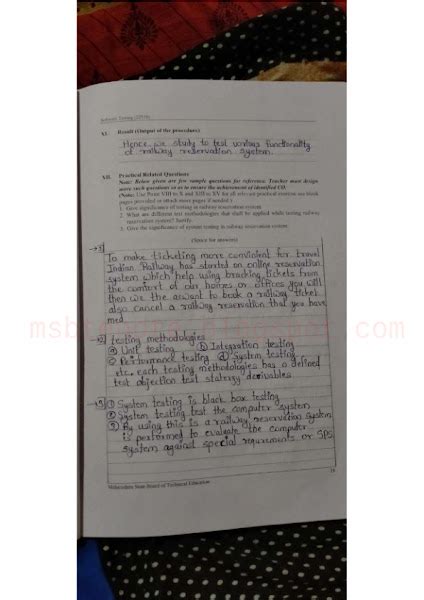 Software Testing (22518)
XI. Result (Output of the procedure)
Hence we study to test various functionality
of railway reservation system.
XII. Practical Related Questions
Note: Below given are few sample questions for reference. Teacher must design
more such questions so as to ensure the achievement of identified CO.
(Note: Use Point VIII to X and XIII to XV for all relevant practical exercises use blank
pages provided or attach more pages if needed.)
1. Give significance of testing in railway reservation system.
2. What are different test methodologies that shall be applied while testing railway
reservation system? Justify.
3. Give the significance of system testing in railway reservation system.
(Space for answers)
To make ticketing more convinient for travel
Indian Railway has started on online reservation
system which help using bracking tickets from
the comfort of our homes or offices you will
then we the acwant to book a railway ticket
also cancel a railway reservation that you have
med
2) testing methodologies
a) Unit testing b) Integration testing
c) Performance testing d) System testing
etc. each testing methodologies has a defined
test objection test statergy derivables
3) ① System testing is black box testing
② System testing test the computer system
③ By using this is a railway reservation system
is performed to evaluate the computer
system against special requirements or SRS
Maharashtra State Board of Technical Education